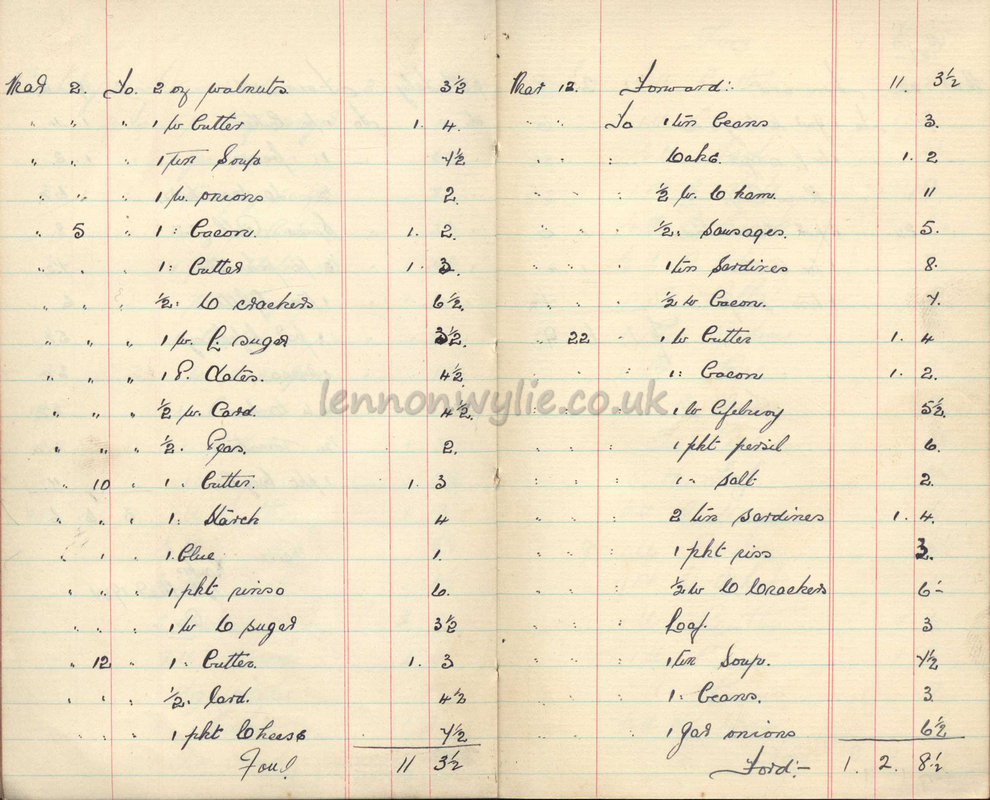 Mar 2. To. 2 oz walnuts 3½
" " " 1 lb butter 1. 4.
" " " 1 tin Soup 7½
" " " 1 lb. onions 2.
" 5 " 1 : bacon. 1. 2.
" " " 1 : butter 1. 3.
" " " ½ : C crackers 6½.
" " " 1 lb. sugar 3½.
" " " 1 P. dates. 4½
" " " ½ lb. Lard. 4½.
" " " ½. Peas. 2.
" 10 " 1 " butter. 1. 3
" " " 1 : Starch 4
" " " 1. blue 1.
" " " 1 pkt rinso 6.
" " " 1 lb C sugar 3½
" 12 " 1 : butter. 1. 3
" " " ½ : lard. 4½
" " " 1 pkt Cheese 7½
Ford 11 3½
Mar 12. Forward :- 11. 3½
" " To 1 tin beans 3.
" " : Cake. 1. 2
" " : ½ lb. C ham. 11
" " : ½ : Sausages. 5.
" " : 1 tin Sardines 8.
" " : ½ lb bacon. 7.
" 22 : 1 lb butter 1. 4
" " : 1 : bacon 1. 2.
" " : 1 lb 5½.
" " : 1 pkt persil 6.
" " : 1 " Salt 2.
" " : 2 tin sardines 1. 4.
" " : 1 pkt 3.
" " : ½ lb C Crackers 6-
" " : Loaf. 3
" " : 1 tin Soup. 7½
" " : 1 : beans. 3
" " : 1 jar onions 6½
Ford :- 1. 2. 8½
lennonwylie.co.uk